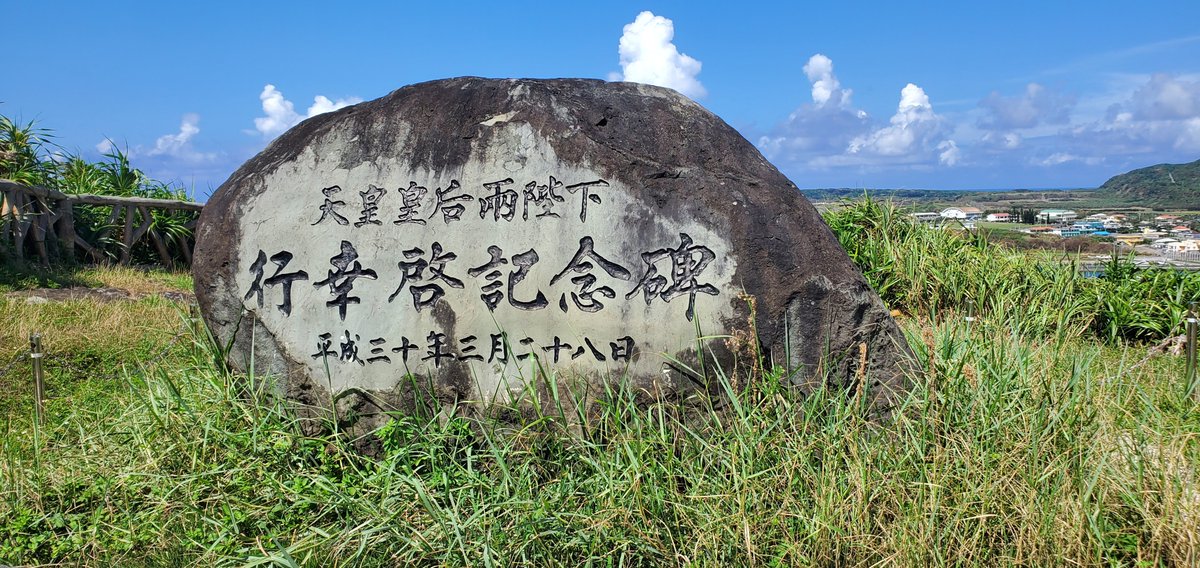 天皇皇后兩陛下
行幸啓記念碑
平成三十年三月二十八日